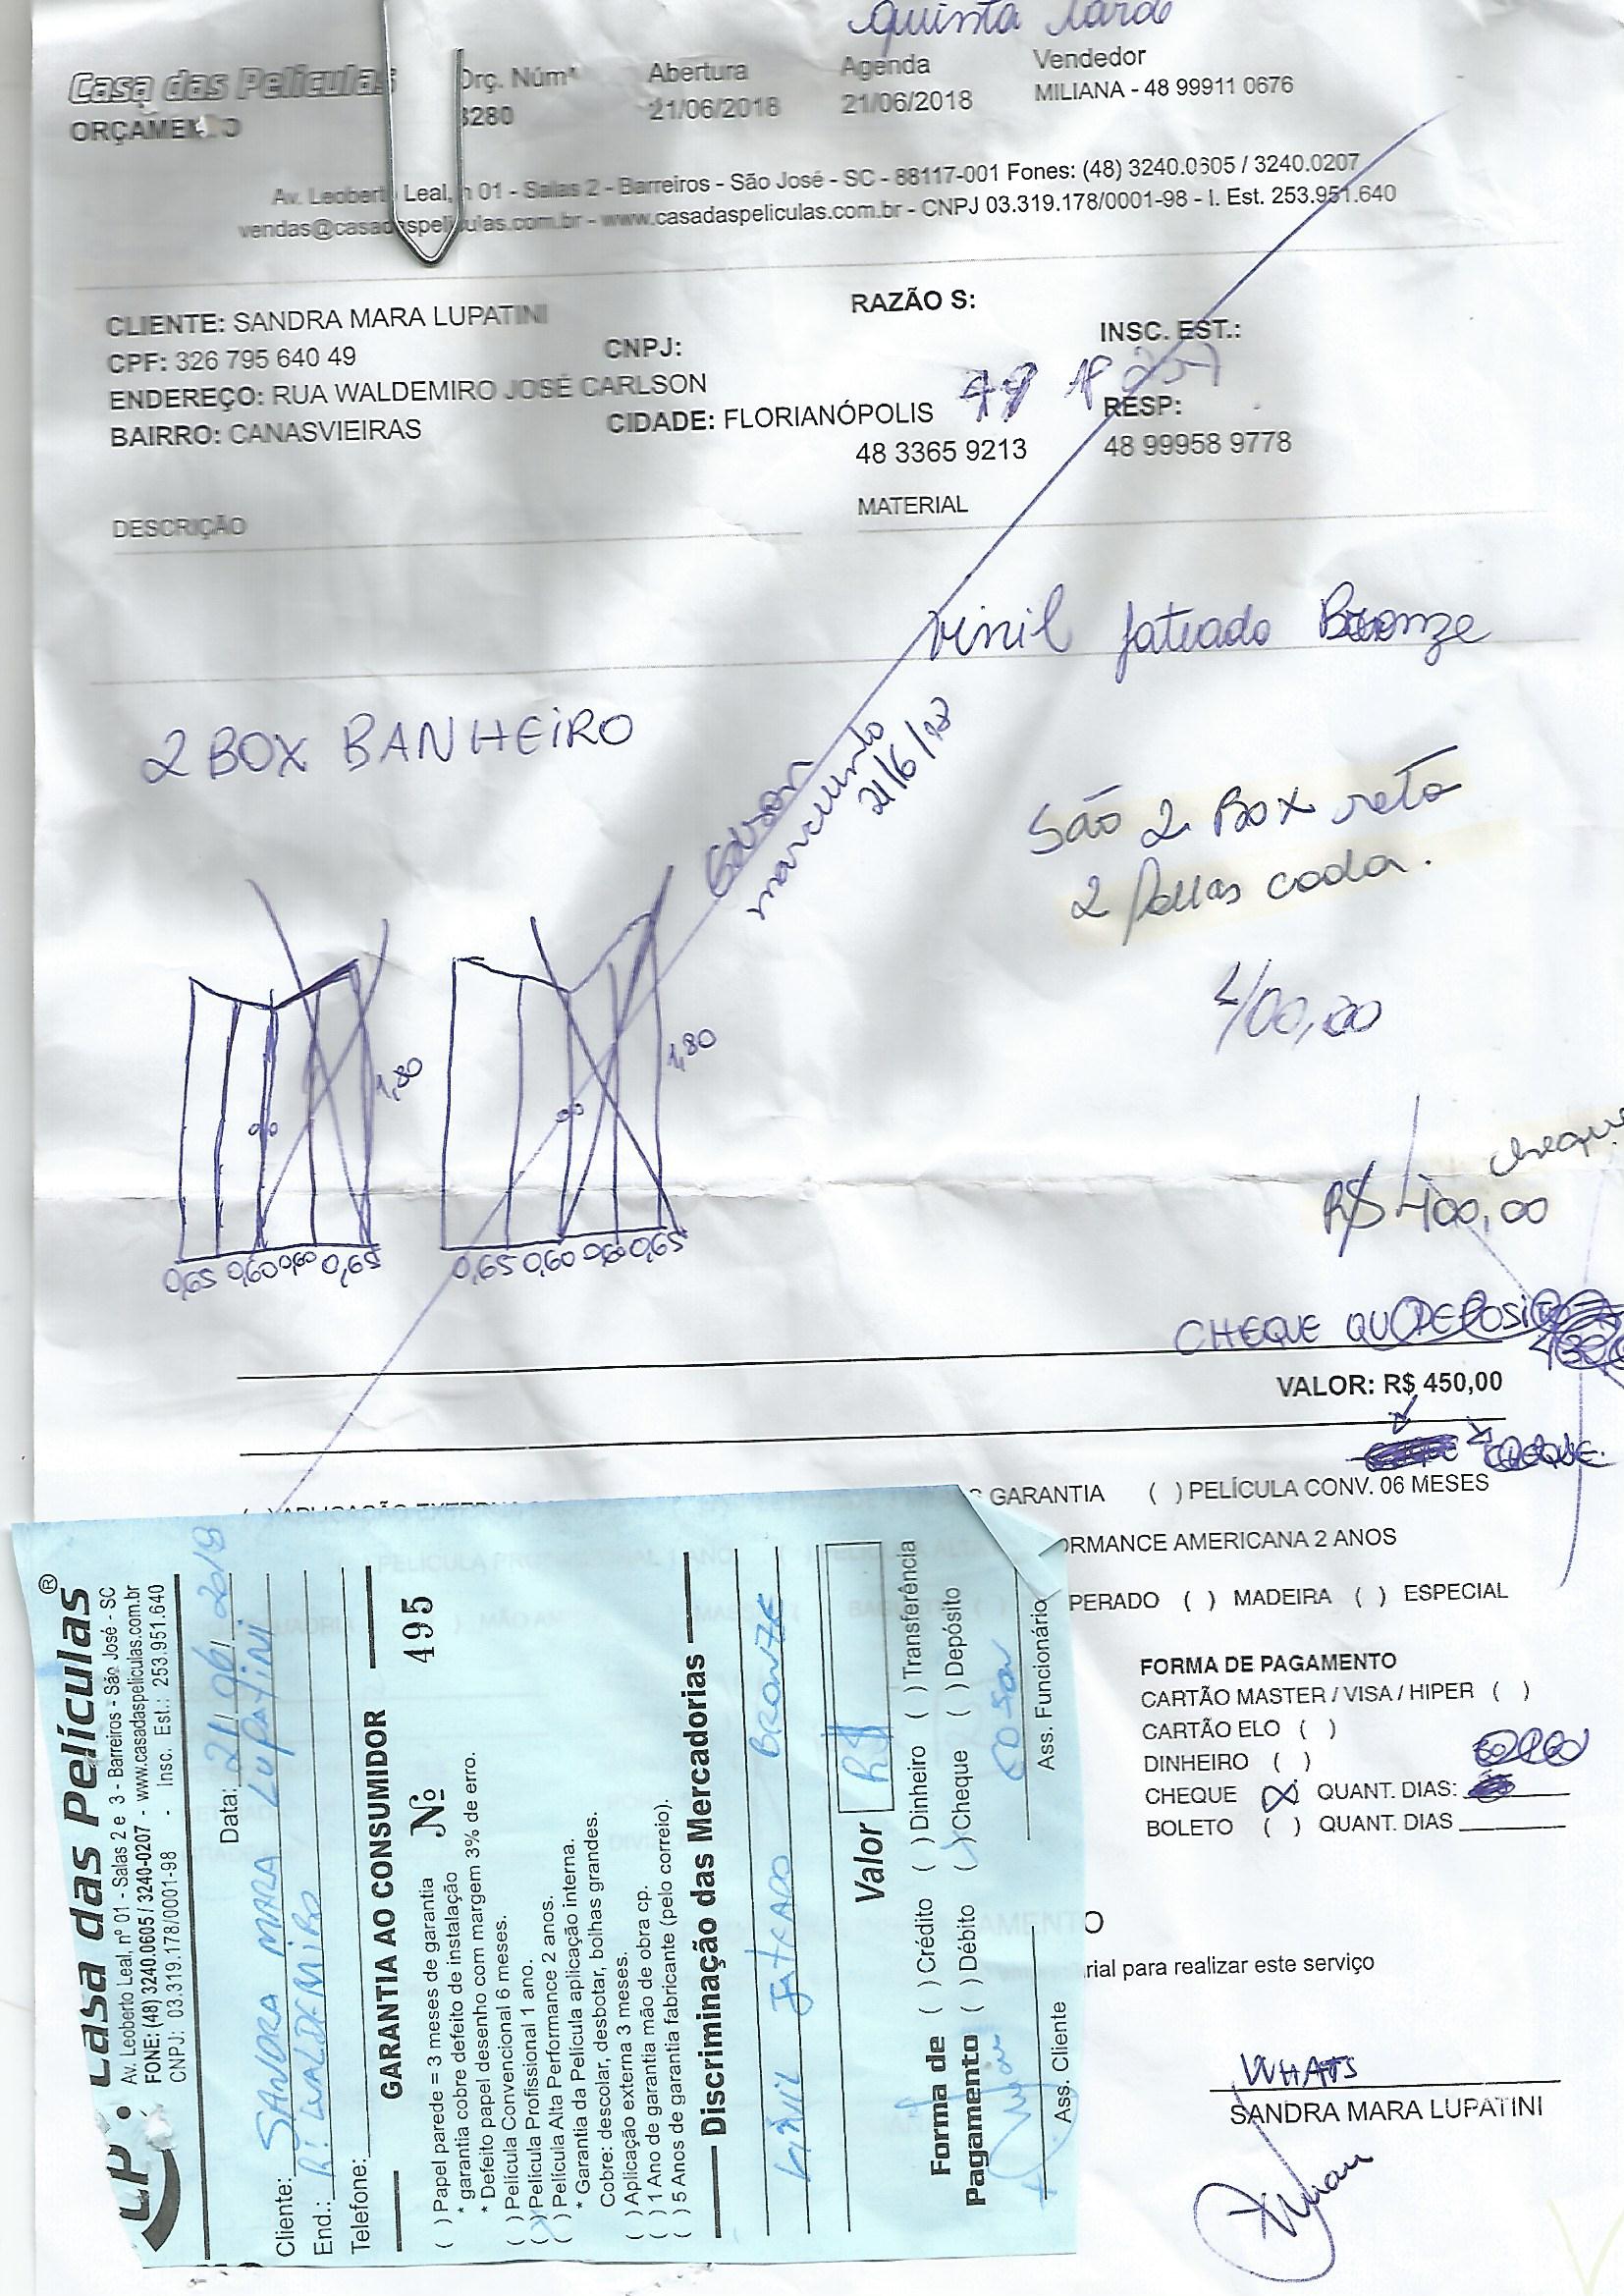 quinta tarde
Casa das Películas
ORÇAMENTO
Orç. Núm°
3280
Abertura
21/06/2018
Agenda
21/06/2018
Vendedor
MILIANA - 48 99911 0676
Av. Leoberto Leal, n 01 - Salas 2 - Barreiros - São José - SC - 88117-001 Fones: (48) 3240.0605 / 3240.0207
vendas@casadaspeliculas.com.br - www.casadaspeliculas.com.br - CNPJ 03.319.178/0001-98 - I. Est. 253.951.640
CLIENTE: SANDRA MARA LUPATINI
RAZÃO S:
CPF: 326 795 640 49
CNPJ:
INSC. EST.:
ENDEREÇO: RUA WALDEMIRO JOSÉ CARLSON
BAIRRO: CANASVIEIRAS
CIDADE: FLORIANÓPOLIS
RESP:
48 3365 9213
48 99958 9778
DESCRIÇÃO
MATERIAL
Vinil jateado Bronze
2 BOX BANHEIRO
21/6/18
São 2 Box reto
2 folhas cada.
400,00
1,80
1,80
0,65 0,60 0,60 0,65
0,65 0,60 0,60 0,65
cheque
R$ 400,00
CHEQUE OU DEPOSITO
VALOR: R$ 450,00
CHEQUE
GARANTIA ( ) PELÍCULA CONV. 06 MESES
ORMANCE AMERICANA 2 ANOS
PERADO ( ) MADEIRA ( ) ESPECIAL
FORMA DE PAGAMENTO
CARTÃO MASTER / VISA / HIPER ( )
CARTÃO ELO ( )
DINHEIRO ( )
CHEQUE (X) QUANT. DIAS:
BOLETO ( ) QUANT. DIAS
rial para realizar este serviço
WHATS
SANDRA MARA LUPATINI
Casa das Películas®
Av. Leoberto Leal, nº 01 - Salas 2 e 3 - Barreiros - São José - SC
FONE: (48) 3240.0605 / 3240-0207 - www.casadaspeliculas.com.br
CNPJ: 03.319.178/0001-98 - Insc. Est.: 253.951.640
Data: 21/06/2018
Cliente: SANDRA MARA LUPATINI
End.: R: WALDEMIRO
Telefone:
GARANTIA AO CONSUMIDOR
Nº 495
( ) Papel parede = 3 meses de garantia
* garantia cobre defeito de instalação
* Defeito papel desenho com margem 3% de erro.
( ) Película Convencional 6 meses.
(X) Película Profissional 1 ano.
( ) Película Alta Performance 2 anos.
* Garantia da Película aplicação interna.
Cobre: descolar, desbotar, bolhas grandes.
( ) Aplicação externa 3 meses.
( ) 1 Ano de garantia mão de obra cp.
( ) 5 Anos de garantia fabricante (pelo correio).
Discriminação das Mercadorias
VINIL JATEADO BRONZE
Valor R$
Forma de Pagamento
( ) Crédito ( ) Dinheiro ( ) Transferência
( ) Débito (X) Cheque ( ) Depósito
Ass. Cliente
Ass. Funcionário